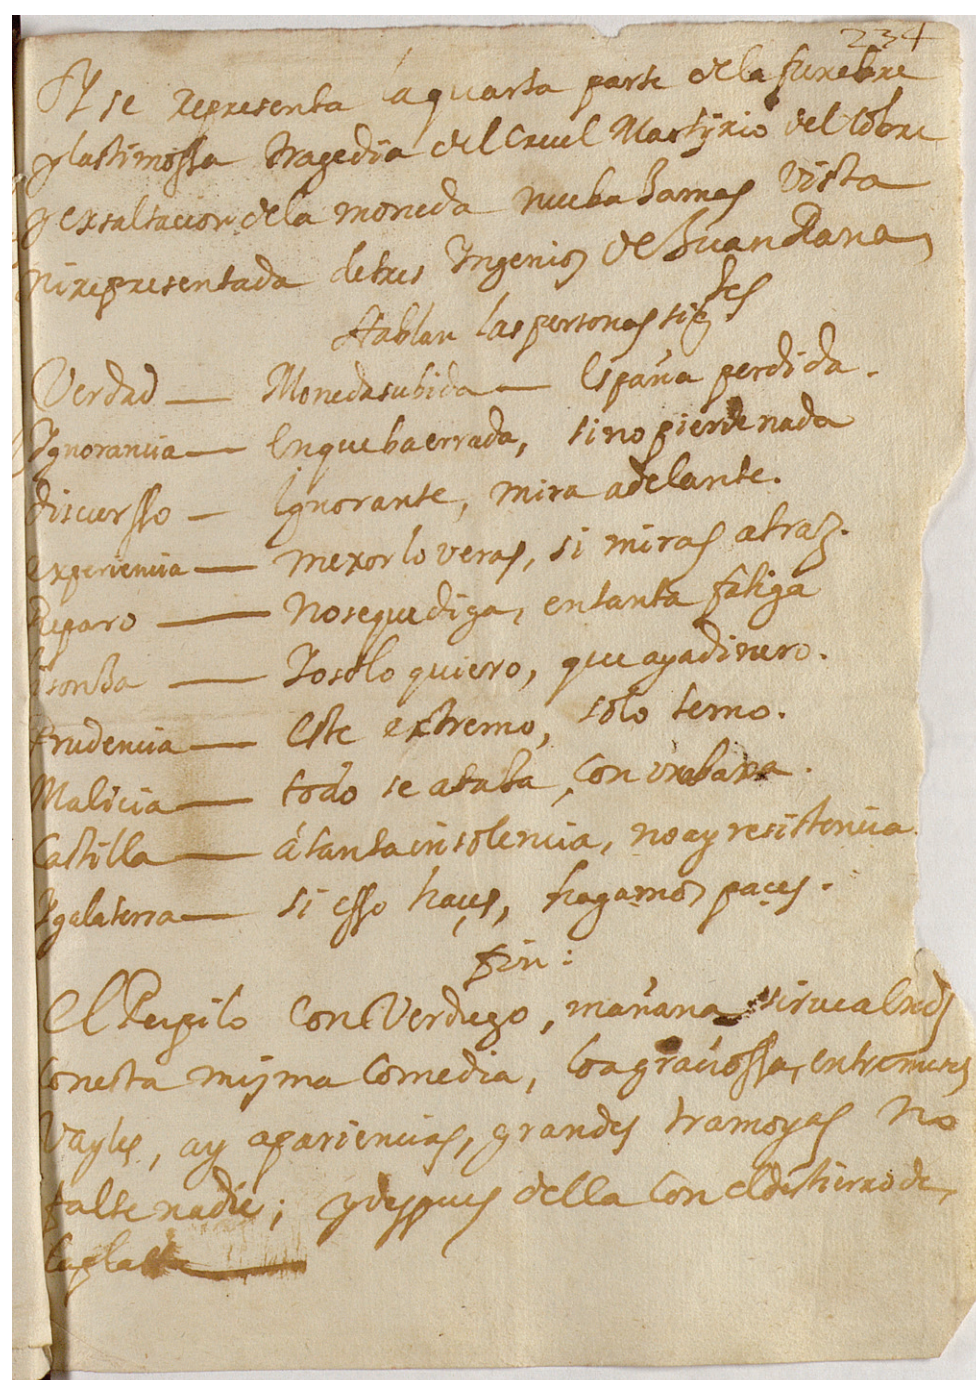 234
Y se representa la quarta parte dela funebre
y lastimossa tragedia del Cruel Martyrio del Cobre
y exsaltacion dela moneda nueba Jamas Vista
ni representada de tres Ingenios de Buan Rana
Hablan las personas sigtes
Verdad — Moneda subida — España perdida.
Ygnorancia — Enque ba errada, sino pierde nada
discursso — Ignorante, mira adelante.
experiencia — mexor lo veras, si miras atraz.
Reparo — no se que diga, en tanta fatiga
lisonJa — Yo solo quiero, que aya dinero.
Prudencia — Este extremo, solo temo.
Malicia — todo se acaba, con
Castilla — á tanta insolencia, no ay resistencia.
Ygalaterra — si esso haçes, hagamos paçes.
fin:
El Pupilo Con Verdugo, mañana sirve al
Con esta misma Comedia, loa graciossa, entremeses
Vayles, ay apariencias, grandes tramoyas No
falte nadie; y despues della Con el destierro de
la plata